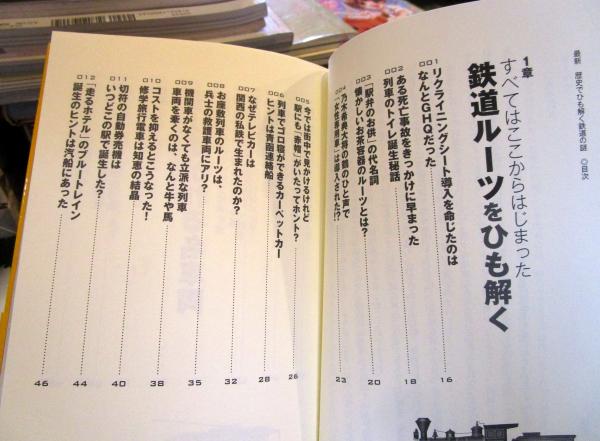 最新 歴史でひも解く鉄道の謎 ◎目次
1章
すべてはここからはじまった
鉄道ルーツをひも解く
001
リクライニングシート導入を命じたのは
なんとGHQだった 16
002
ある死亡事故をきっかけに早まった
列車のトイレ誕生秘話 18
003
「駅弁のお供」の代名詞
懐かしいお茶容器のルーツとは? 20
004
乃木希典大将の鶴のひと声で
「女性専用車」は導入された!? 23
005
今では街中で見かけるけれど
駅にも「赤帽」がいたってホント? 26
006
列車でゴロ寝ができるカーペットカー
ヒントは青函連絡船 28
007
なぜテレビカーは
関西の私鉄で生まれたのか? 32
008
お座敷列車のルーツは、
兵士の救護車両にアリ? 35
009
機関車がなくても立派な列車
車両を牽くのは、なんと牛や馬 38
010
コストを抑えるとこうなった!
修学旅行電車は知恵の結晶 40
011
切符の自動券売機は
いつどこの駅で誕生した? 44
012
「走るホテル」のブルートレイン
誕生のヒントは汽船にあった 46